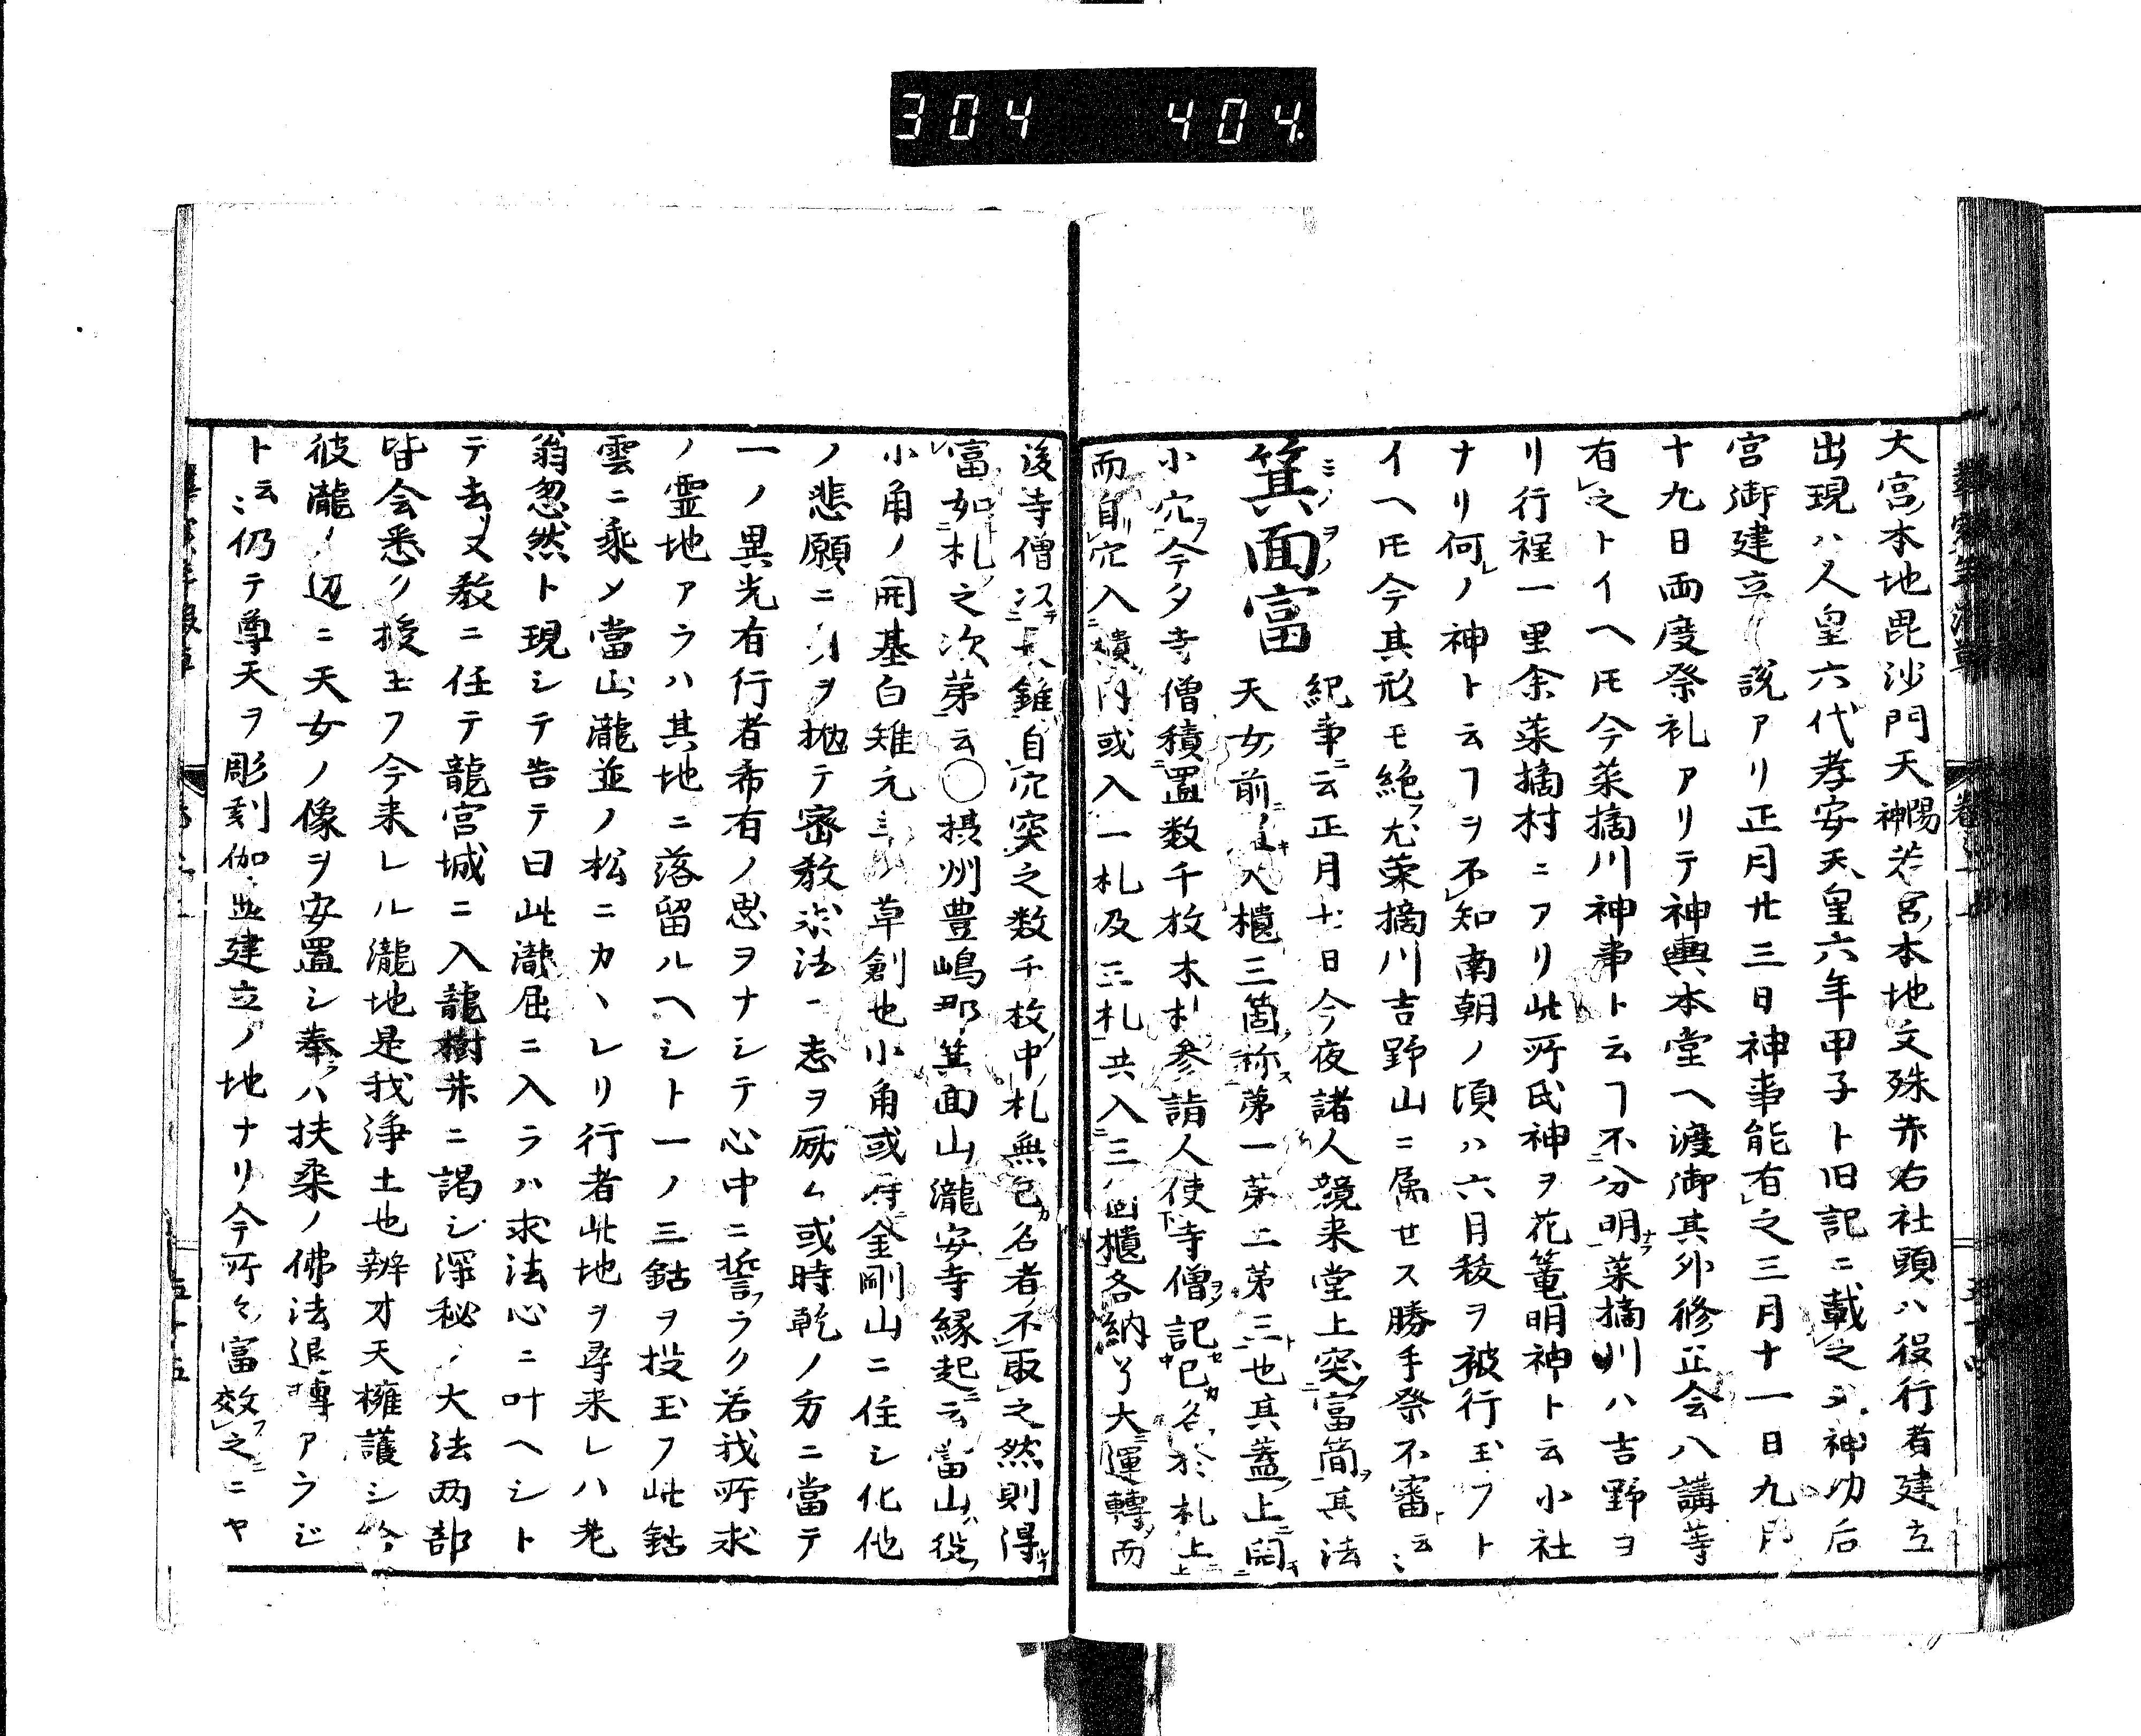 304 404
大宮本地毘沙門天神陽若宮本地文殊𦬇右社頭ハ役行者建立
出現ハ人皇六代孝安天皇六年甲子ト旧記ニ載之又神功后
宮御建立 説アリ正月廿三日神事能有之三月十一日九月
十九日両度祭礼アリテ神輿本堂ヘ渡御其外修正会八講等
有之トイヘ𪜈今菜摘川神事ト云ヿ不分明菜摘川ハ吉野ヨ
リ行程一里余菜摘村ニアリ此所氏神ヲ花篭明神ト云小社
ナリ何ノ神ト云ヿヲ不知南朝ノ頃ハ六月秡ヲ被行玉フト
イヘ𪜈今其形モ絶尤菜摘川吉野山ニ属せス勝手祭不審云〻
箕面富 紀事云正月七日今夜諸人競来堂上突富簡其法
天女前 入櫃三箇称第一第二第三也其蓋上開
小穴今夕寺僧積置数千枚木札参詣人使寺僧記己名於札上
而自穴入櫃内或入一札及三札共入三ノ櫃各納了大運轉而
後寺僧 長錐自穴突之数千枚中札無己名者不取之然則得
富如札之次第云〇摂州豊嶋郡箕面山瀧安寺縁起云當山役
小角ノ開基白雉元 草創也小角或時金剛山ニ住シ化他
ノ悲願ニ ヲ抛テ密教求法一志ヲ厳ム或時乾ノ方ニ當テ
一ノ異光有行者希有ノ思ヲナシテ心中ニ誓ラク若我所求
ノ霊地アラハ其地ニ落留ルヘシト一ノ三鈷ヲ投玉フ此鈷
雲ニ乗メ當山瀧並ノ松ニカヽレリ行者此地ヲ尋来レハ老
翁忽然ト現シテ告テ曰此瀧屈ニ入ラハ求法心ニ叶ヘシト
テ去又教ニ任テ龍宮城ニ入龍樹𦬇ニ謁シ深秘ノ大法两部
皆会悉ク授玉フ今来レル瀧地是我浄土也辨才天擁護シ給
彼瀧ノ辺ニ天女ノ像ヲ安置シ奉ハ扶桒ノ佛法退轉アラジ
ト云〻仍テ尊天ヲ彫刻伽 建立ノ地ナリ今所々富效之ニヤ